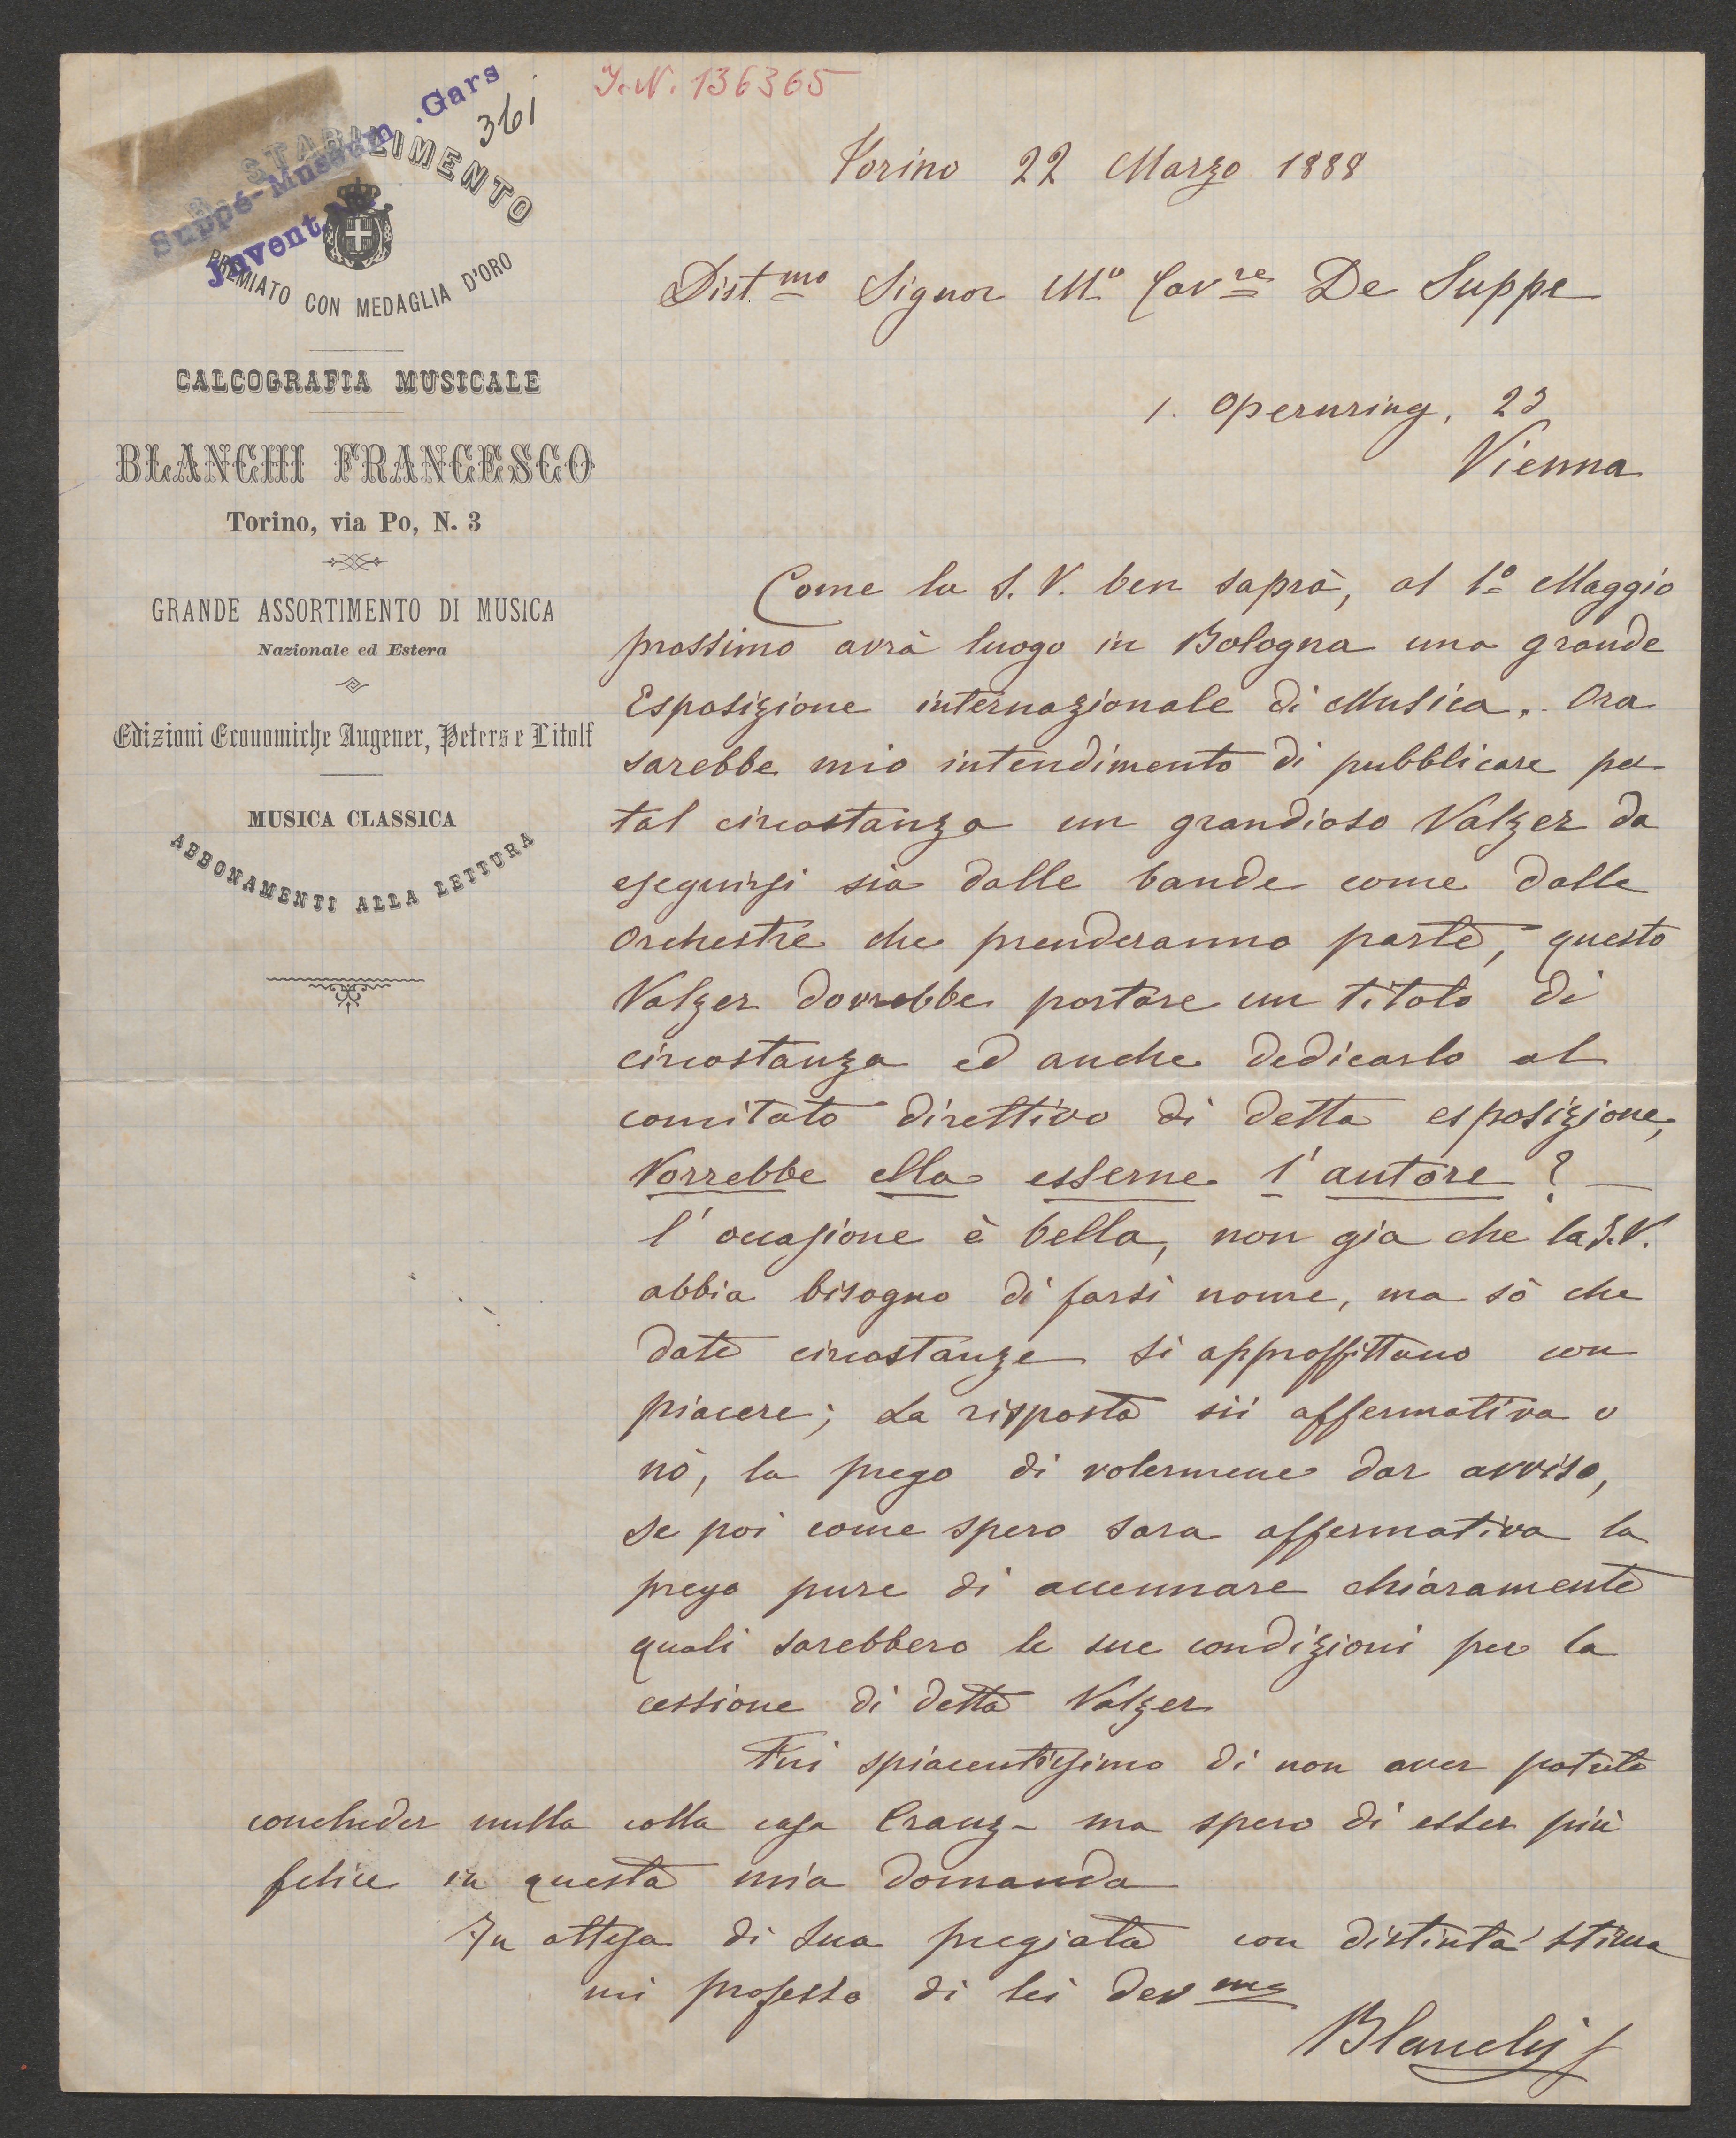 I.N. 136365
Suppé-Museum .Gars
Jnvent.Nr.
361
R. STABILIMENTO
PREMIATO CON MEDAGLIA D'ORO
CALCOGRAFIA MUSICALE
BLANCHI FRANCESCO
Torino, via Po, N. 3
GRANDE ASSORTIMENTO DI MUSICA
Nazionale ed Estera
Edizioni Economiche Augener, Peters e Litolf
MUSICA CLASSICA
ABBONAMENTI ALLA LETTURA
Torino 22 Marzo 1888
Dist.mo Signor M.o Cav.re De Suppe
1. Opernring, 23
Vienna
Come la S. V. ben saprà, al 1.o Maggio
prossimo avrà luogo in Bologna una grande
Esposizione internazionale di Musica. Ora
sarebbe mio intendimento di pubblicare per
tal circostanza un grandioso Valzer da
eseguirsi sia dalle bande come dalle
Orchestre che prenderanno parte, questo
Valzer dovrebbe portare un titolo di
circostanza ed anche dedicarlo al
comitato direttivo di detta esposizione,
Vorrebbe ella esserne l'autore? —
l'occasione è bella, non gia che la S.V.
abbia bisogno di farsi nome, ma sò che
date circostanze si approffittano con
piacere; La risposta sii affermativa o
nò, la prego di volermene dar avviso,
se poi come spero sara affermativa la
prego pure di accennare chiaramente
quali sarebbero le sue condizioni per la
cessione di detto Valzer
Fui spiacentissimo di non aver potuto
concluder nulla colla casa Cranz - ma spero di esser più
felice in questa mia domanda
In attesa di Sua pregiata con distinta stima
mi professo di lei dev.mo
Blanchi f